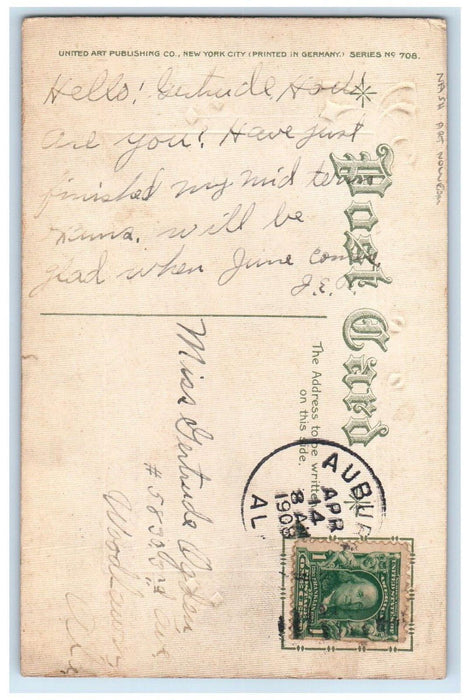 UNITED ART PUBLISHING CO., NEW YORK CITY (PRINTED IN GERMANY.) SERIES Nº 708.
Hello! Gertrude, How
are you? Have just
finished my mid term
xams. will be
glad when June comes.
J.E.
Post Card
The Address to be written
on this side.
NASH ART NOUVEAU
Miss Gertrude Ogden
Woodlawn
Ala
AUBURN
APR
14
8 AM
1908
AL
1
1